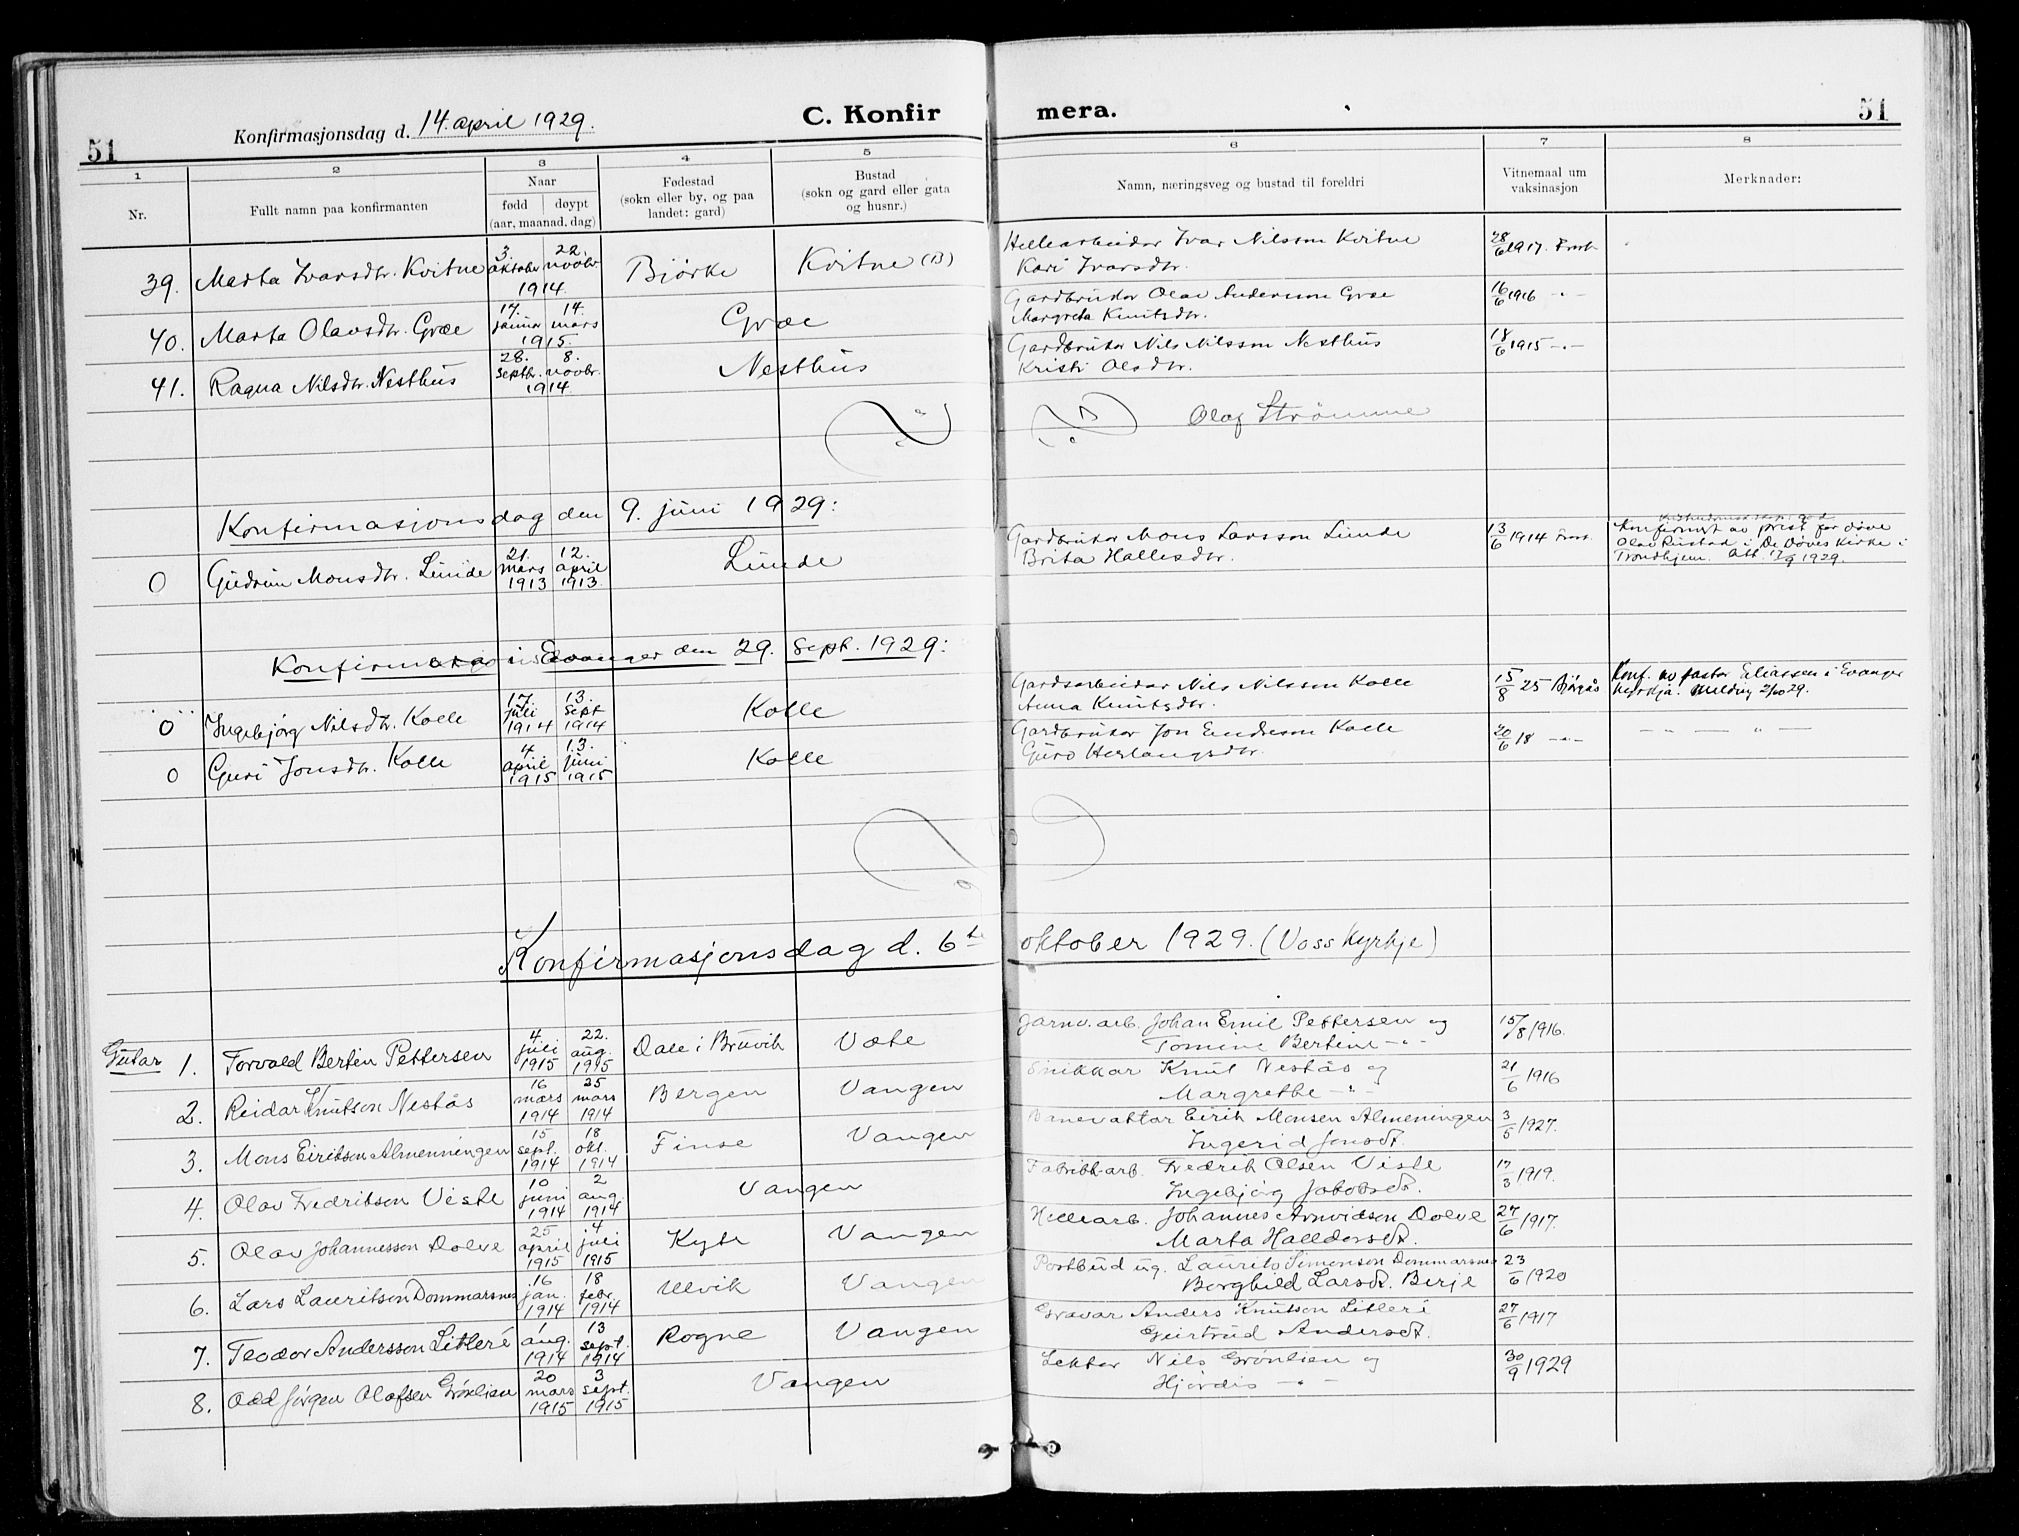 51 Konfirmasjonsdag d. 14. april 1929. C. Konfirmera. 51
1 2 3 4 5 6 7 8
Nr. Fullt namn paa konfirmanten Naar fødd døypt (aar, maanad, dag) Fødestad (sokn eller by, og paa landet: gard) Bustad (sokn og gard eller gata og husnr.) Namn, næringsveg og bustad til foreldri Vitnemaal um vaksinasjon Merknader:
39. Marta Ivarsdtr. Kvitne 3. oktober 22. novbr. 1914 Bjørke Kvitne (B) Hellearbeidar Ivar Nilsson Kvitne 28/6 1917.
Kari Ivarsdtr.
40. Marta Olavsdtr. Græe 17. januar 14. mars 1915 Græe Gardbrukar Olav Anderson Græe 16/6 1916 -"-
Margreta Knutsdtr.
41. Ragna Nilsdtr. Nesthus 28. septbr. 8. novbr. 1914 Nesthus Gardbrukar Nils Nilsson Nesthus 18/6 1915 -"-
Kristi Olsdtr.
Olaf Strömme
Konfirmasjonsdag den 9. juni 1929:
0 Gudrun Monsdtr. Lunde 21. mars 1913 12. april 1913 Lunde Gardbrukar Mons Larsson Lunde 13/6 1914 Konfirmert av prest for døve
Brita Hallesdtr. Olav Rustad i De Døves Kirke i
Trondhjem. Att. 17/9 1929.
Konfirm i Evanger den 29. sept. 1929:
0 Ingebjørg Nilsdtr. Kolle 17. juli 1914 13. sept 1914 Kolle Gardsarbeidar Nils Nilsson Kolle 15/8 25 Konf. av pastor Eliassen i Evanger
Anna Knutsdtr. kyrkja. Melding 2/10 29.
0 Guri Jonsdtr. Kolle 4 april 1915 13. juni 1915 Kolle Gardbrukar Jon Endreson Kolle 20/6 18 -"- — — — " —
Guro Herlaugsdtr.
Konfirmasjonsdag d. 6te oktober 1929. (Voss Kyrkje)
Gutar 1. Torvald Bertin Pettersen 4. juli 1915 22. aug. 1915 Dale i Bruvik Væte Jarnv. arb. Johan Emil Pettersen og 15/8 1916.
Tomine Bertine -"-
2. Reidar Knutson Nestås 16 mars 1914 25 mars 1914 Bergen Vangen Snikkar Knut Nestås og 21/6 1916
Margrethe -"-
3. Mons Eirikson Almenningen 15 sept. 1914 18 okt. 1914 Finse Vangen Banevaktar Eirik Monsen Almenningen 3/5 1927.
Ingerid Jonsdt.
4. Olav Fredrikson Viste 10 juni 1914 2 aug. 1914 Vangen Fabrikkarb. Fredrik Olsen Viste 17/3 1919.
Ingebjørg Jakobsdt.
5. Olav Johannesson Dolve 25 april 1915 4 juli 1915 Kyte Vangen Hellearb. Johannes Arnvidson Dolve 27/6 1917.
Marta Halldorsdt.
6. Lars Lauritson Dommarsnes 16 jan. 1914 18 febr. 1914 Ulvik Vangen Postbud ug. Laurits Simonson Dommarsnes 23/6 1920
Borghild Larsdt. Birje
7. Teodor Andersson Litleré 1 aug. 1914 13 sept. 1914 Rogne Vangen Gravar Anders Knutson Litleré 27/6 1917
Geirtrud Andersdt.
8. Odd Jørgen Olafsen Grønlien 20 mars 1915 3 sept. 1915 Vangen Lektor Nils Grønlien og 30/9 1929
Hjørdis -"-